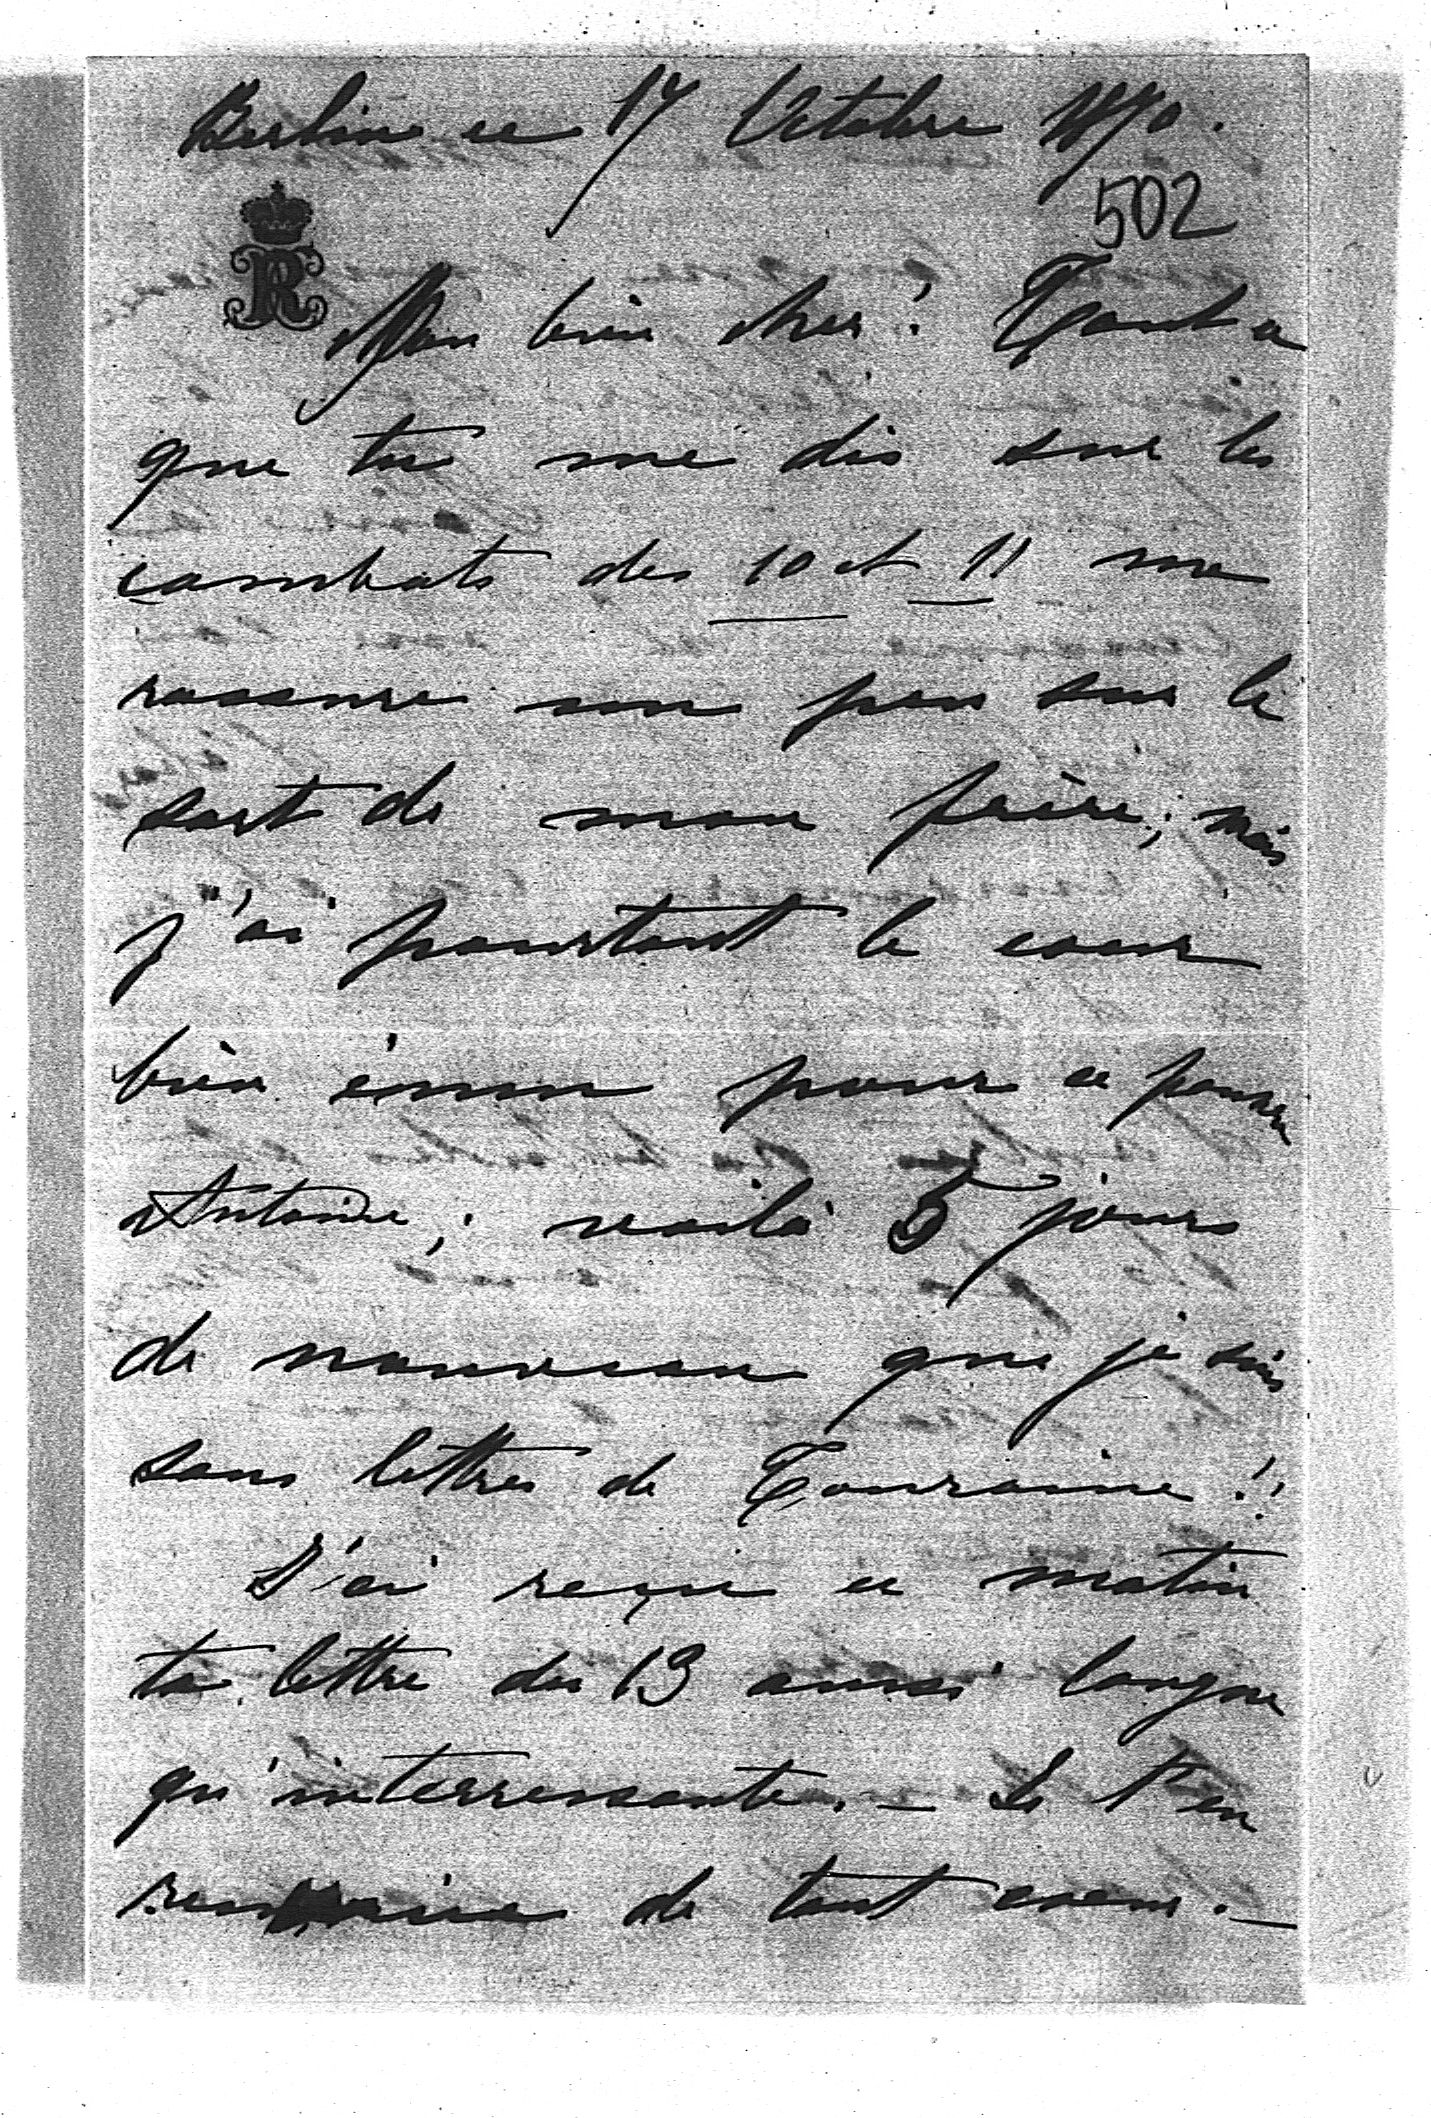 Berlin ce 17 Octobre 1870.
502
R
Mon bien cher! Tout ce
que tu me dis sur les
combats des 10 et 11 me
rassure un peu sur le
sort de mon frère; mais
j'ai pourtant le coeur
bien émue pour ce pauvre
Antoine; voilà 5 jours
de nouveau que je suis
sans lettres de Touraine!!
J'ai reçu ce matin
ta lettre du 13 aussi longue
qu'interressante. – Je t'en
remercie de tout coeur. –